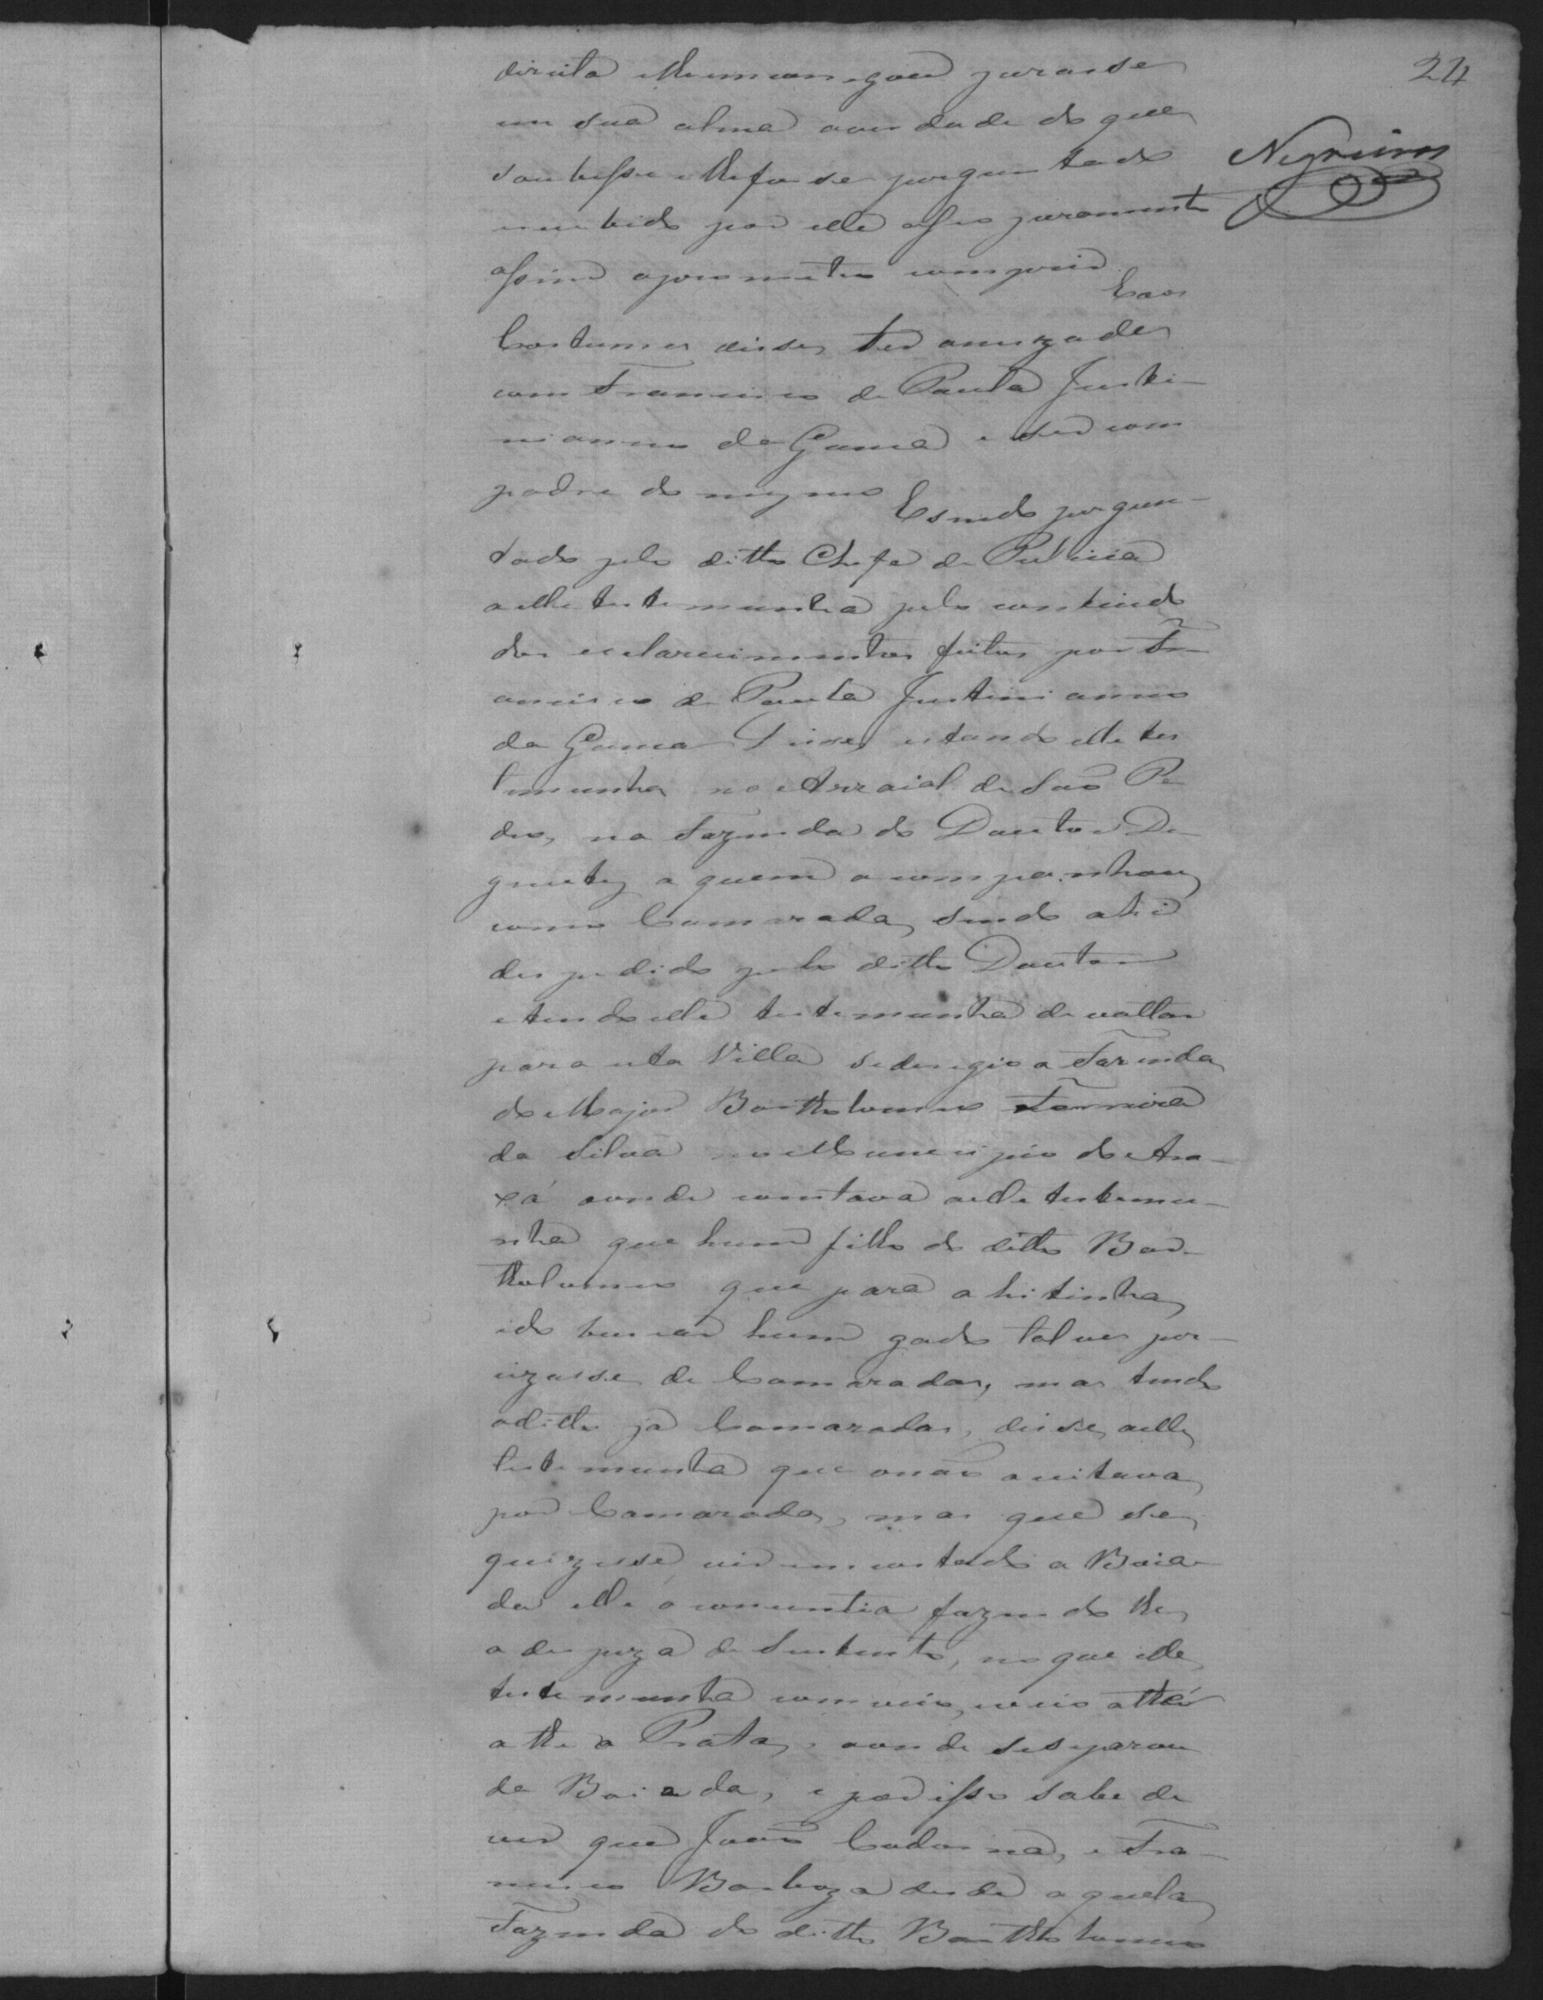 24
Negreiros
direita elheemcarregou jurasse
em sua alma averdade do que
soubesse elhefosse perguntado
recebido por elle esse juramento
assim aprometeo comprir.
Eaos
Costumes disse, ter amizade
com Francisco de Paula Justi-
nianno da Gama e ser com
padre do mesmo Esendo pergun-
tado pelo ditto Chefe de Policia
aelle testemunha pelo contiudo
dos esclarecimentos feitos por Fr-
ancisco de Paula Justinianno
da Gama Disse, estando elle tes
temunha no Arraial de São Pe
dro, na Fazenda do Doutor De
a quem acompanhou
como Camarada, sendo ahi
despedido pelo ditto Doutor
etendo elle testemunha de voltar
para esta Villa sederegio a Fazenda
do Major Bartholomeo Ferreira
da Silva no Municipio do Ara-
xá aonde constava aelle testemu-
nha que hum filho do ditto Bar-
tholomeo que para ahitinha
ido buscar hum gado talves por-
cizasse de Camaradas, mas tendo
oditto já Camaradas, disse, aelle
testemunha que onão aceitava
por Camarada, mas que se
quizesse vir encostado a Boia-
da elle o consentia fazendolhe
a despeza de Sustento, no que elle
testemunha conveio, eveio atté
athe o Prata, aonde seseparou
da Boiada, e por isso sabe de
ver que João e Fra-
ncisco Barboza desde aquela
Fazenda do ditto Bartholomeo